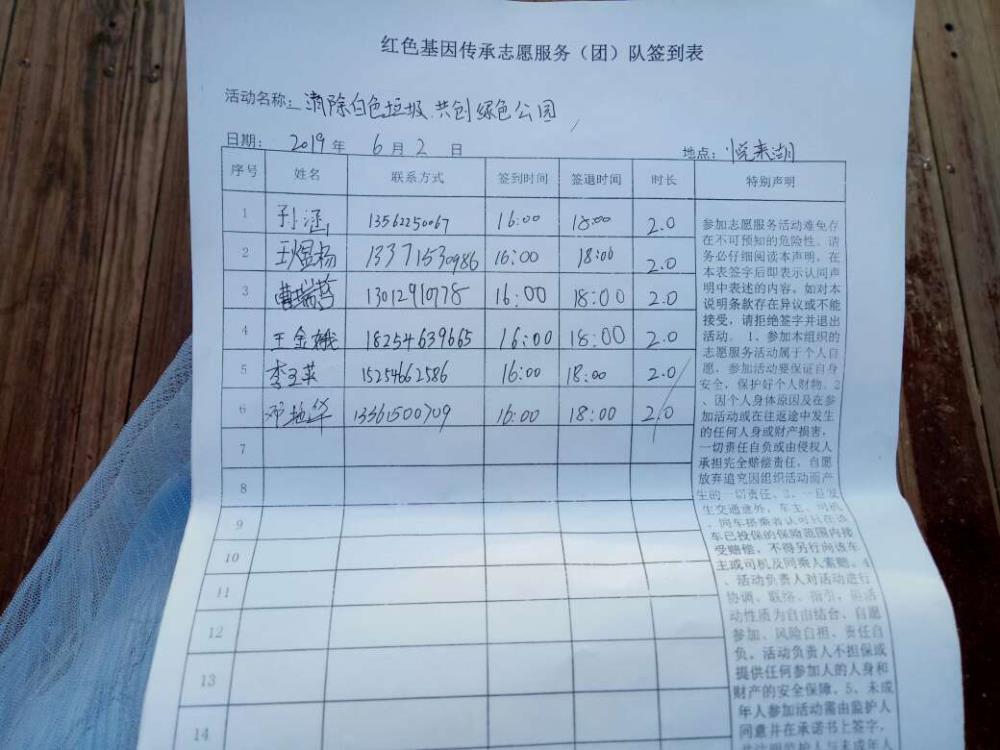 红色基因传承志愿服务（团）队签到表
活动名称：清除白色垃圾、共创绿色公园
日期： 2019 年 6 月 2 日 地点：悦来湖
序号 姓名 联系方式 签到时间 签退时间 时长 特别声明
1 孙涵 13562250067 16:00 18:00 2.0
2 13371530986 16:00 18:00 2.0
3 曹瑞芬 13012910778 16:00 18:00 2.0
4 王金娥 18254639665 16:00 18:00 2.0
5 李玉英 15254662586 16:00 18:00 2.0
6 邓艳华 13361500709 16:00 18:00 2.0
7
8
9
10
11
12
13
14
参加志愿服务活动难免存
在不可预知的危险性。请
务必仔细阅读本声明，在
本表签字后即表示认同声
明中表述的内容。如对本
说明条款存在异议或不能
接受，请拒绝签字并退出
活动。 1、参加本组织的
志愿服务活动属于个人自
愿，参加活动要保证自身
安全，保护好个人财物。2
、因个人身体原因及在参
加活动或在往返途中发生
的任何人身或财产损害，
一切责任自负或由侵权人
承担完全赔偿责任，自愿
放弃追究因组织活动而产
生的一切责任。3、一旦发
生交通意外，车主、司机
、同车搭乘者认可只在该
车已投保的保险范围内接
受赔偿，不得另行向该车
主或司机及同乘人索赔。4
、活动负责人对活动进行
协调、联络、指引，该活
动性质为自由结合、自愿
参加、风险自担、责任自
负。活动负责人不担保或
提供任何参加人的人身和
财产的安全保障。5、未成
年人参加活动需由监护人
同意并在承诺书上签字，